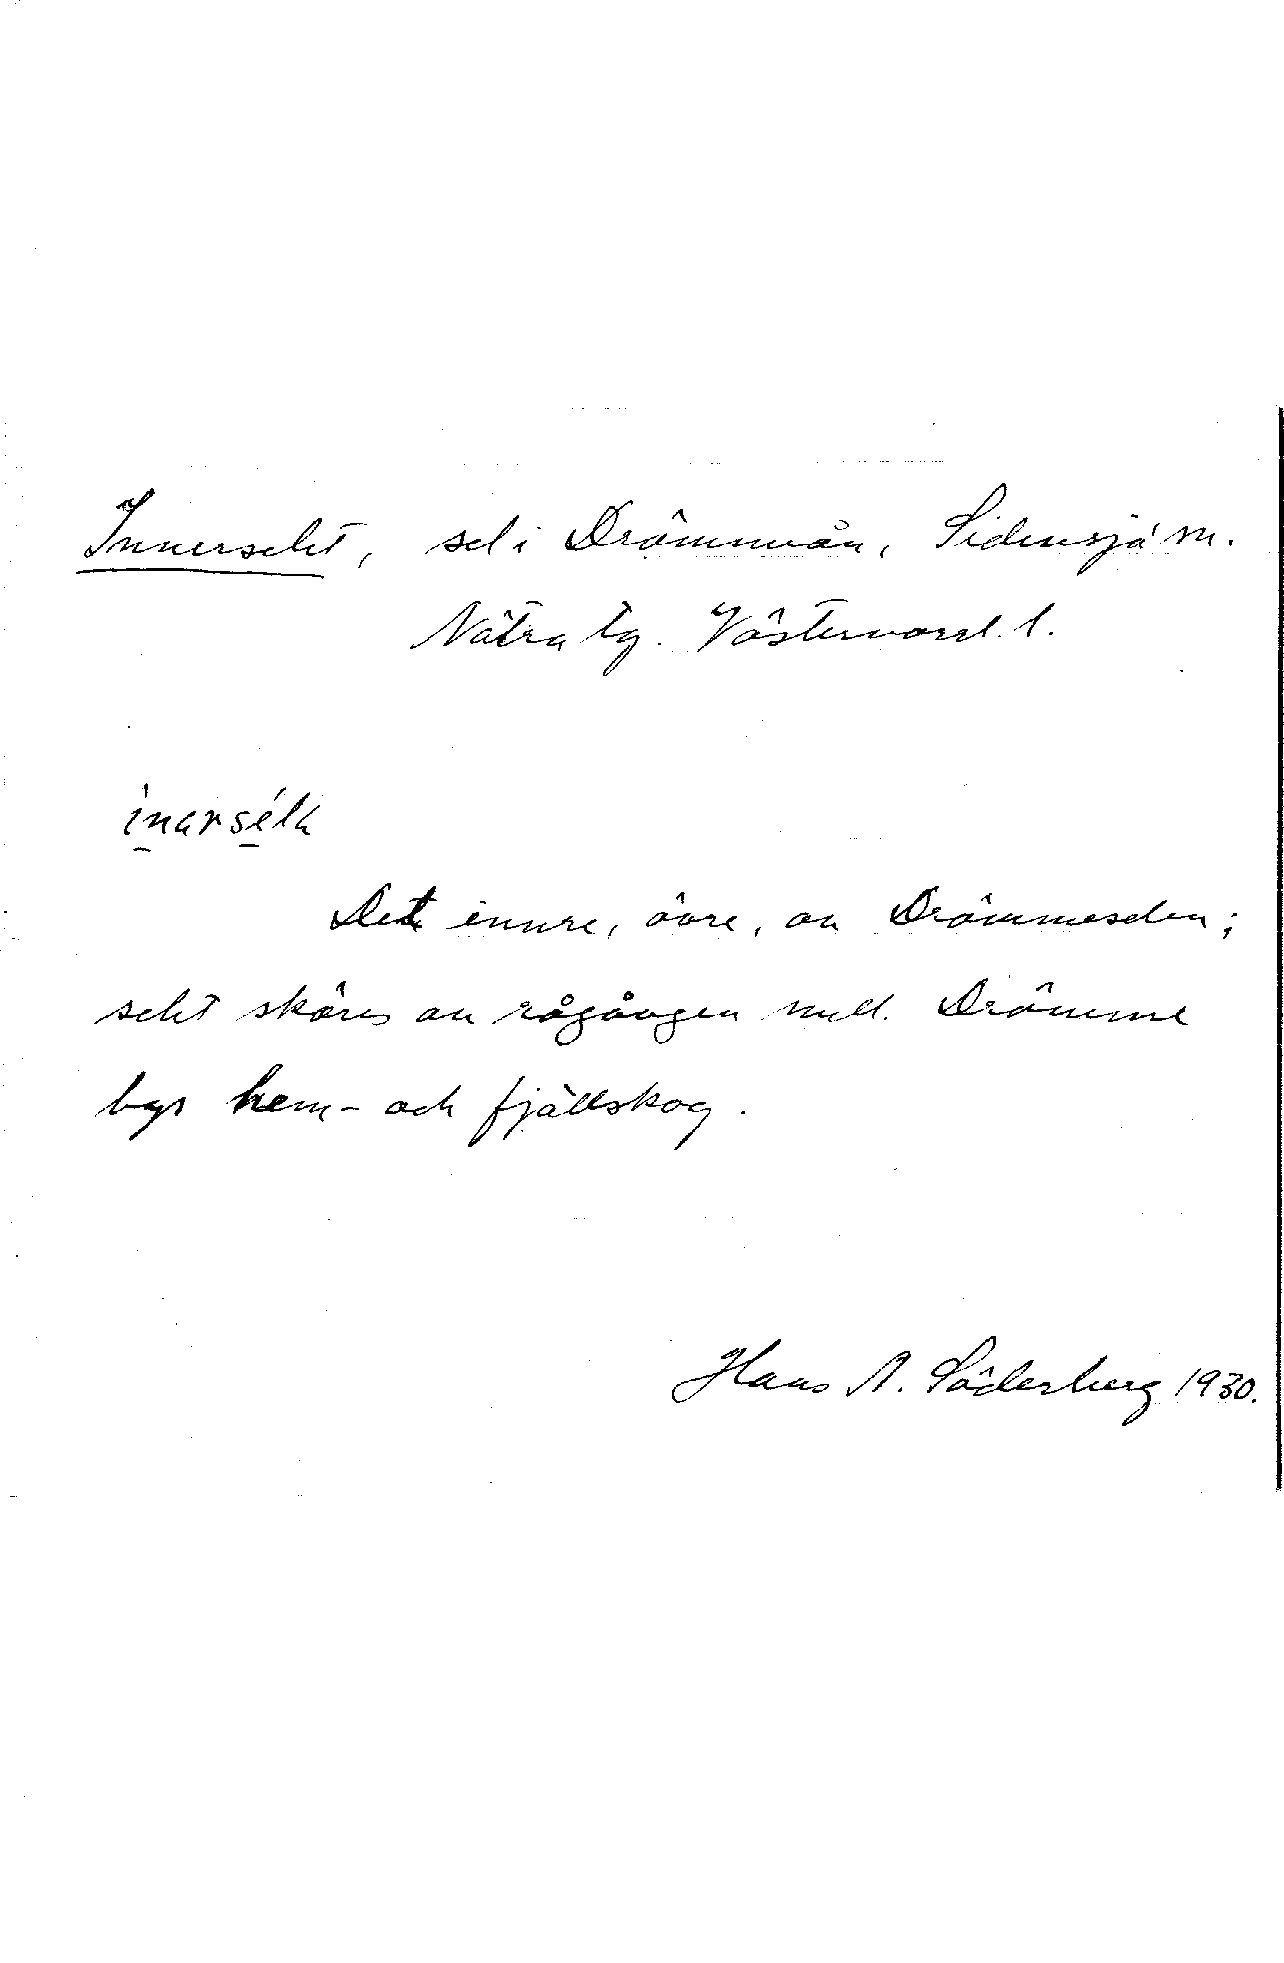 Innerselet, sel i Drömmeån, Sidensjö sn.
Nätra tg. Västernorrl. l.
ìnarséla
Det innre, övre, av Drömmeselen;
selet skäres av rågången mell. Drömme
bys hem- och fjällskog.
Hans A. Söderberg 1930.